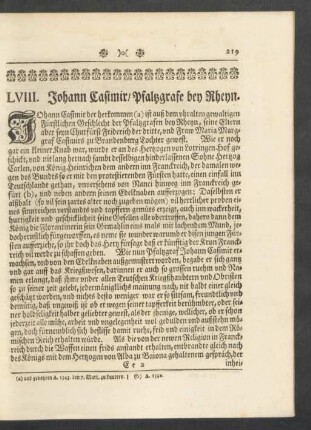 219
LVIII. Johann Casimir/ Pfaltzgrafe bey Rheyn.
JOhann Casimir der herkommen (a) ist auß dem uhralten gewaltigen
Fürstlichen Geschlecht der Pfaltzgrafen bey Rheyn, seine Eltern
aber seyn Churfürst Friderich der dritte, und Fraw Maria Marg-
graf Casimirs zu Brandenburg Tochter gewest. Wie er noch
gar ein kleiner Knab were, wurde er an des Hertzogen von Lottringen Hof ge-
schickt, und nit lang hernach sambt desselbigen hinderlassenen Sohne Hertzog
Carlen, von König Heinrichen dem andern inn Franckreich, der damalen we-
gen des Bunds so er mit den protestierenden Fürsten hatte, einen einfall ins
Teutschlande gethan, unversehens von Nancy hinweg inn Franckreich ge-
führt (b), und neben andern seinen Edelknaben aufferzogen; Daselbsten er
alsbald (so vil sein zartes alter noch zugeben mögen) vil herrlicher proben ei-
nes sinnreichen verstands und tapffern gemüts erzeigt, auch inn wackerheit,
hurtigkeit und geschicklichheit seine Gesellen alle übertroffen, dahero dann dem
König die Florentinerin sein Gemahl eins mals mit lachendem Mund, je-
doch vernünfftiglich auffrupffet, es neme sie wunder warumb er disen jungen Für-
sten aufferziehe, so ihr doch das Hertz fürsage daß er künfftig der Kron Franck-
reich vil werde zu schaffen geben. Wie nun Pfaltzgraf Johann Casimir er-
wachsen, und von den Edelknaben außgemustert worden, begabe er sich gantz
und gar auff das Kriegswesen, darinnen er auch so grossen ruehm und Na-
men erlangt, daß ihme under allen Teutschen Kriegshäubtern und Obristen
so zu seiner zeit gelebt, jedermänigklichs mainung nach, nit bald einer gleich
geschätzt worden, und nichts desto weniger war er so sittsam, freundtlich und
demütig, daß ungewiß ob er wegen seiner tapfferkeit berühmbter, oder sei-
ner holdseligkeit halber geliebter gewest, als der strenge, weltlicher, ob er schon
jederzeit alle mühe, arbeit und ungelegenheit wol gedulden und außstehn mö-
gen, doch fürnemblich sich beflisse damit ruhe, frid und einigkeit in dem Rö-
mischen Reich erhalten wurde. Als die von der newen Religion in Franck-
reich durch die Waffen einen frids anstandt erhalten, entbrandte gleich nach
des Königs mit dem Hertzogen von Alba zu Baiona gehaltenem gespräch, der
Ee 2
inhei-
(a) und geboren A. 1543. den 7. Mart. zu Lautern. (b) A. 1552.